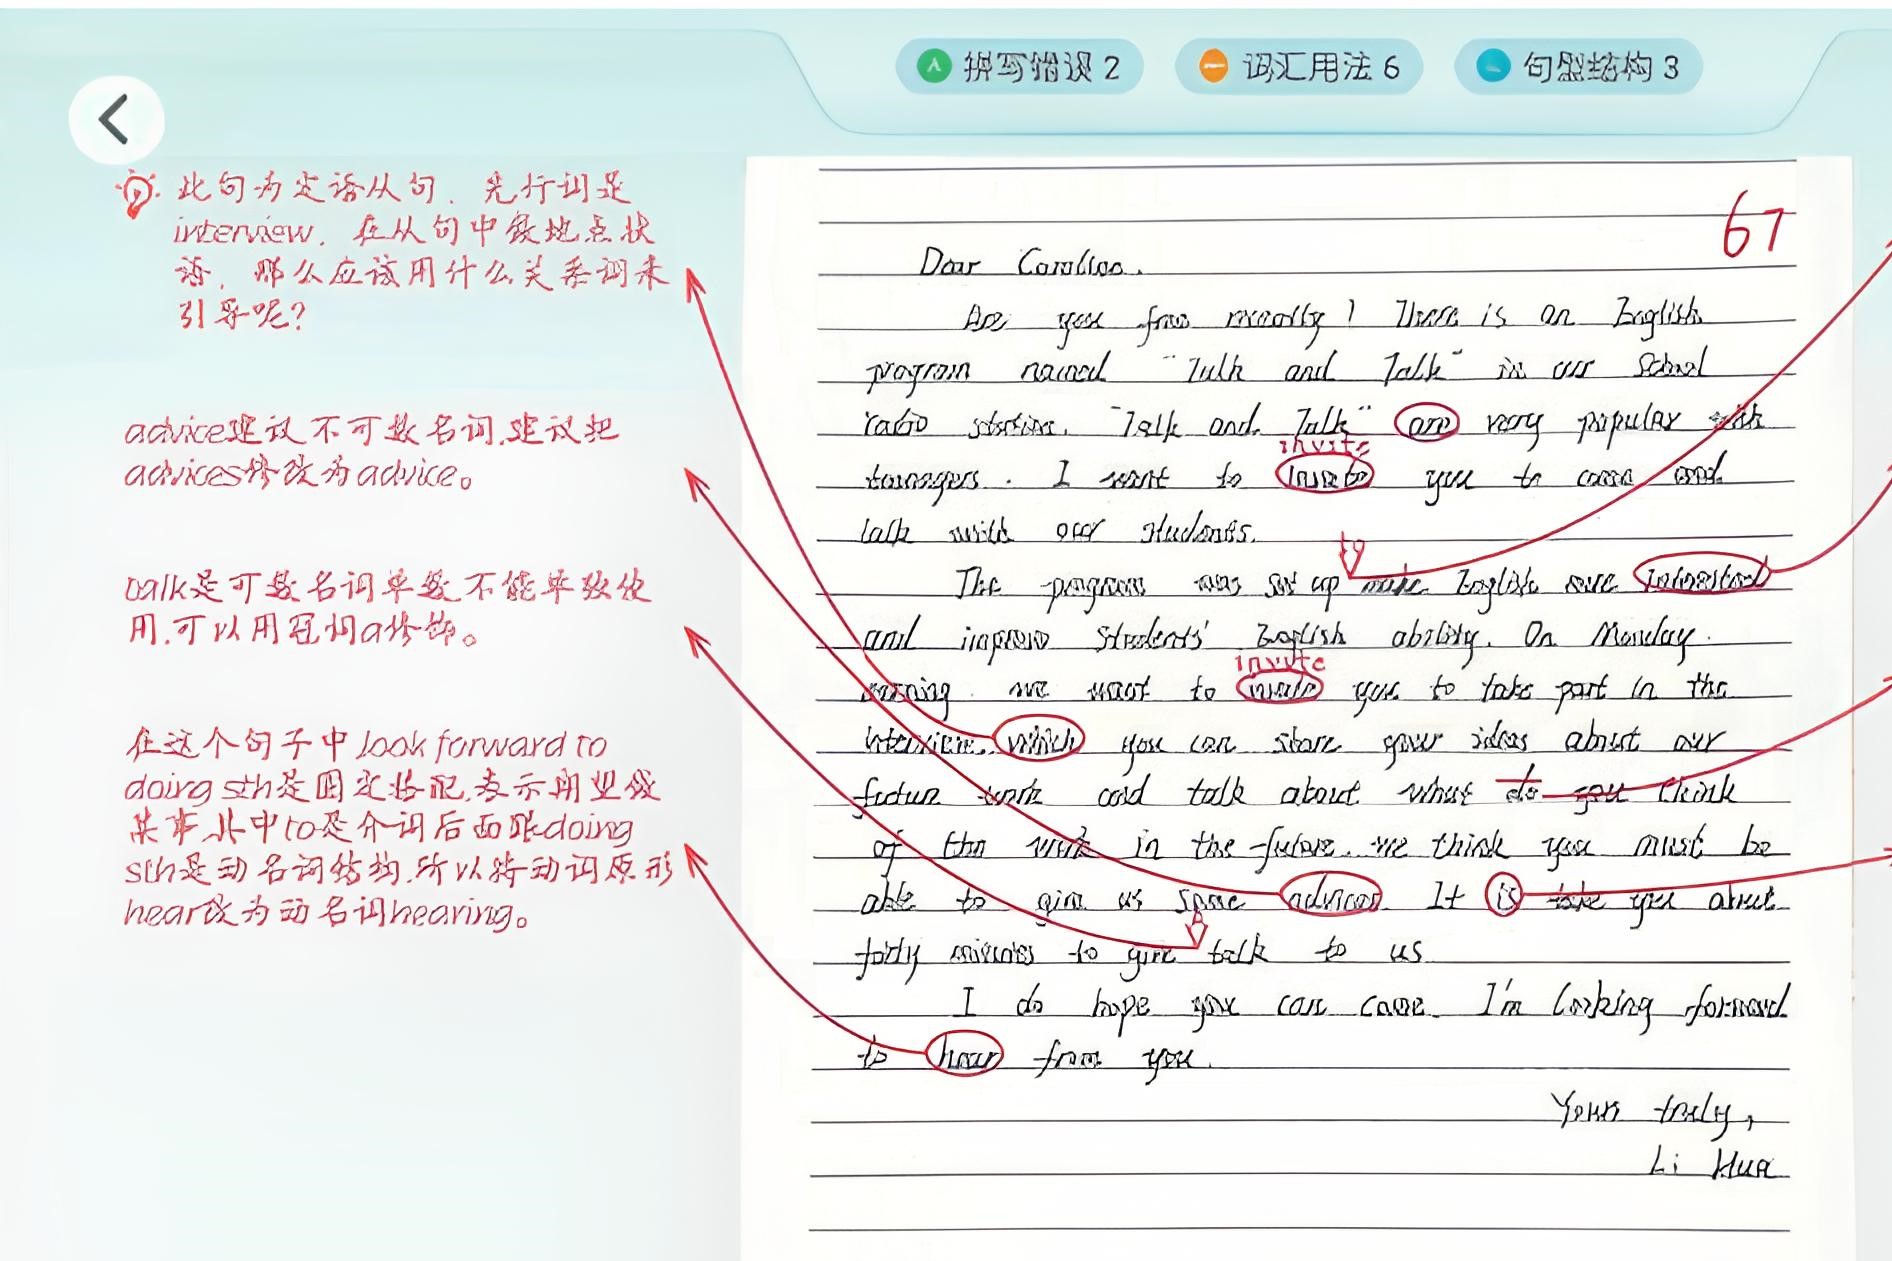 拼写错误 2
词汇用法 6
句型结构 3
此句为定语从句，先行词是
interview，在从句中做地点状
语，那么应该用什么关系词来
引导呢？
advice建议不可数名词，建议把
advices修改为advice。
talk是可数名词单数不能单独使
用，可以用冠词a修饰。
在这个句子中look forward to
doing sth是固定搭配，表示期望做
某事，其中to是介词后面跟doing
sth是动名词结构，所以将动词原形
hear改为动名词hearing。
67
Dear
Are you free recently? There is an English
program named "Talk and Talk" in our School
radio station. "Talk and Talk" are very popular with
invite
teenagers. I want to you to come and
talk with our students.
to
The program was set up make English more interested
and improve Students' English ability. On Monday
invite
morning. we want to you to take part in the
interview, which you can share your ideas about our
future work and talk about what do you think
of the work in the future. we think you must be
able to give us some advices. It is take you about
forty minutes to give talk to us
I do hope you can come. I'm looking forward
to hear from you.
Yours truly,
Li Hua